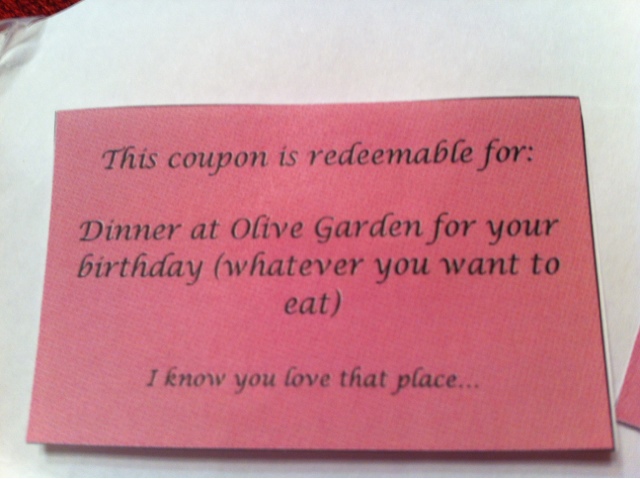 This coupon is redeemable for:
Dinner at Olive Garden for your
birthday (whatever you want to
eat)
I know you love that place...